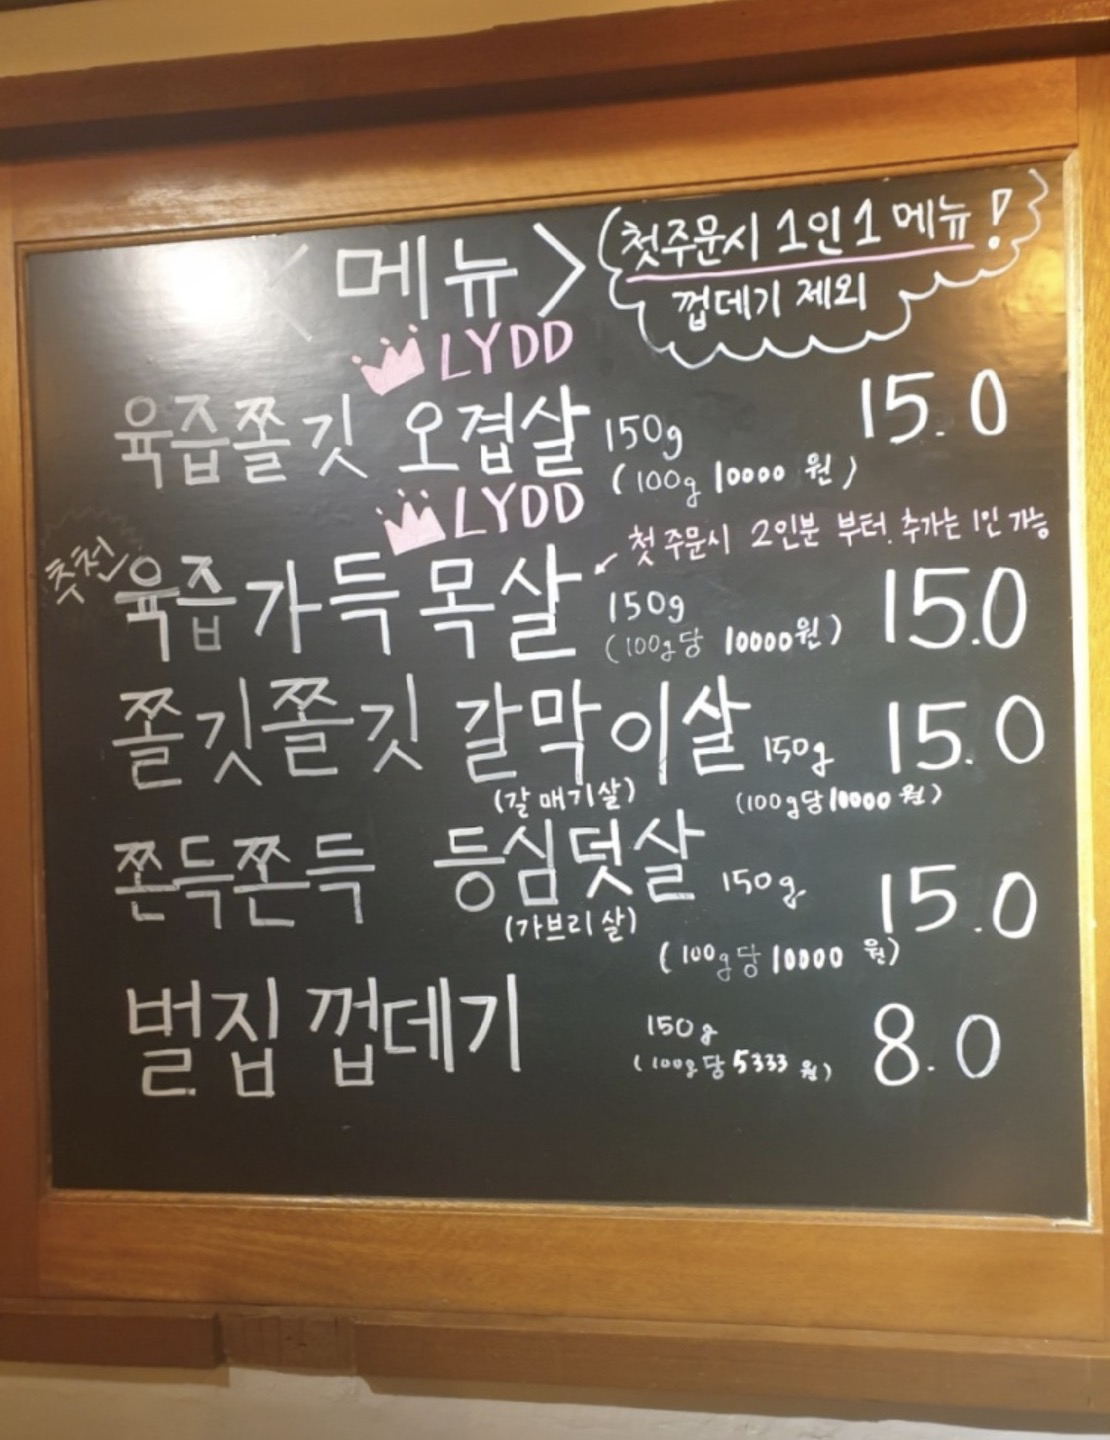 <메뉴>
첫주문시 1인1 메뉴!
껍데기 제외
LYDD
육즙쫄깃 오겹살 150g 15.0
(100g 10000 원)
LYDD
첫 주문시 2인분 부터. 추가는 1인 가능
추천
육즙가득 목살 150g 15.0
(100g당 10000원)
쫄깃쫄깃 갈막이살 150g 15.0
(갈매기살) (100g당 10000 원)
쫀득쫀득 등심덧살 150g 15.0
(가브리살)
(100g당 10000 원)
벌집 껍데기 150g 8.0
(100g당 5333 원)